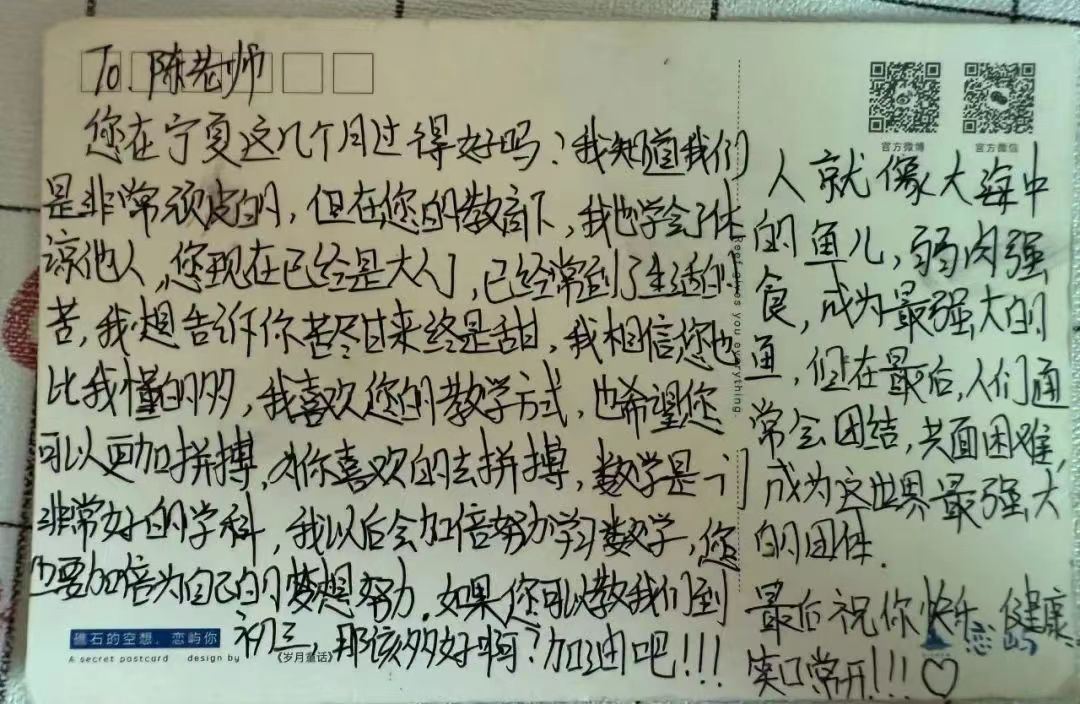 To 陈老师
您在宁夏这几个月过得好吗?我知道我们
是非常顽皮的,但在您的教育下,我也学会了体
谅他人,您现在已经是大人了,已经常到了生活的
苦,我想告诉你苦尽甘来终是甜,我相信您也
比我懂的多,我喜欢您的教学方式,也希望您
可以更加拼搏,为你喜欢的去拼搏,数学是一门
非常好的学科,我以后会加倍努力学习数学,您
也要加倍为自己的梦想努力.如果您可以教我们到
初三,那该多好啊?加油吧!!!
人就像大海中
的鱼儿,弱肉强
食,成为最强大的
鱼,但在最后,人们通
常会团结,共面困难,
成为这世界最强大
的团体.
最后祝你快乐、健康、
笑口常开!!!♡
官方微博
官方微信
Read makes you everything.
礁石的空想,恋屿你
A secret postcard design by
《岁月童话》
恋屿